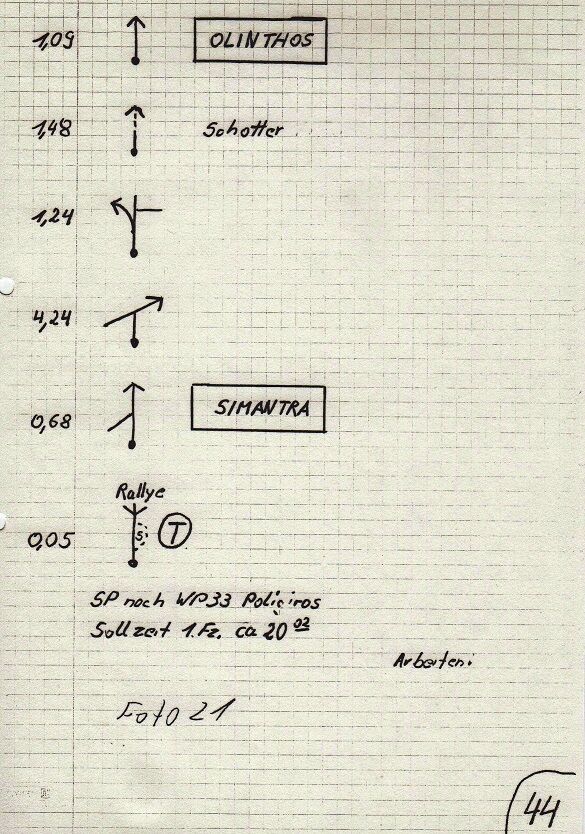 1,09 OLINTHOS
1,48 Schotter
1,24
4,24
0,68 SIMANTRA
Rallye
0,05 S T
SP nach WP33 Poligiros
Sollzeit 1.Fz. ca 20 02
Arbeiten:
Foto 21
44